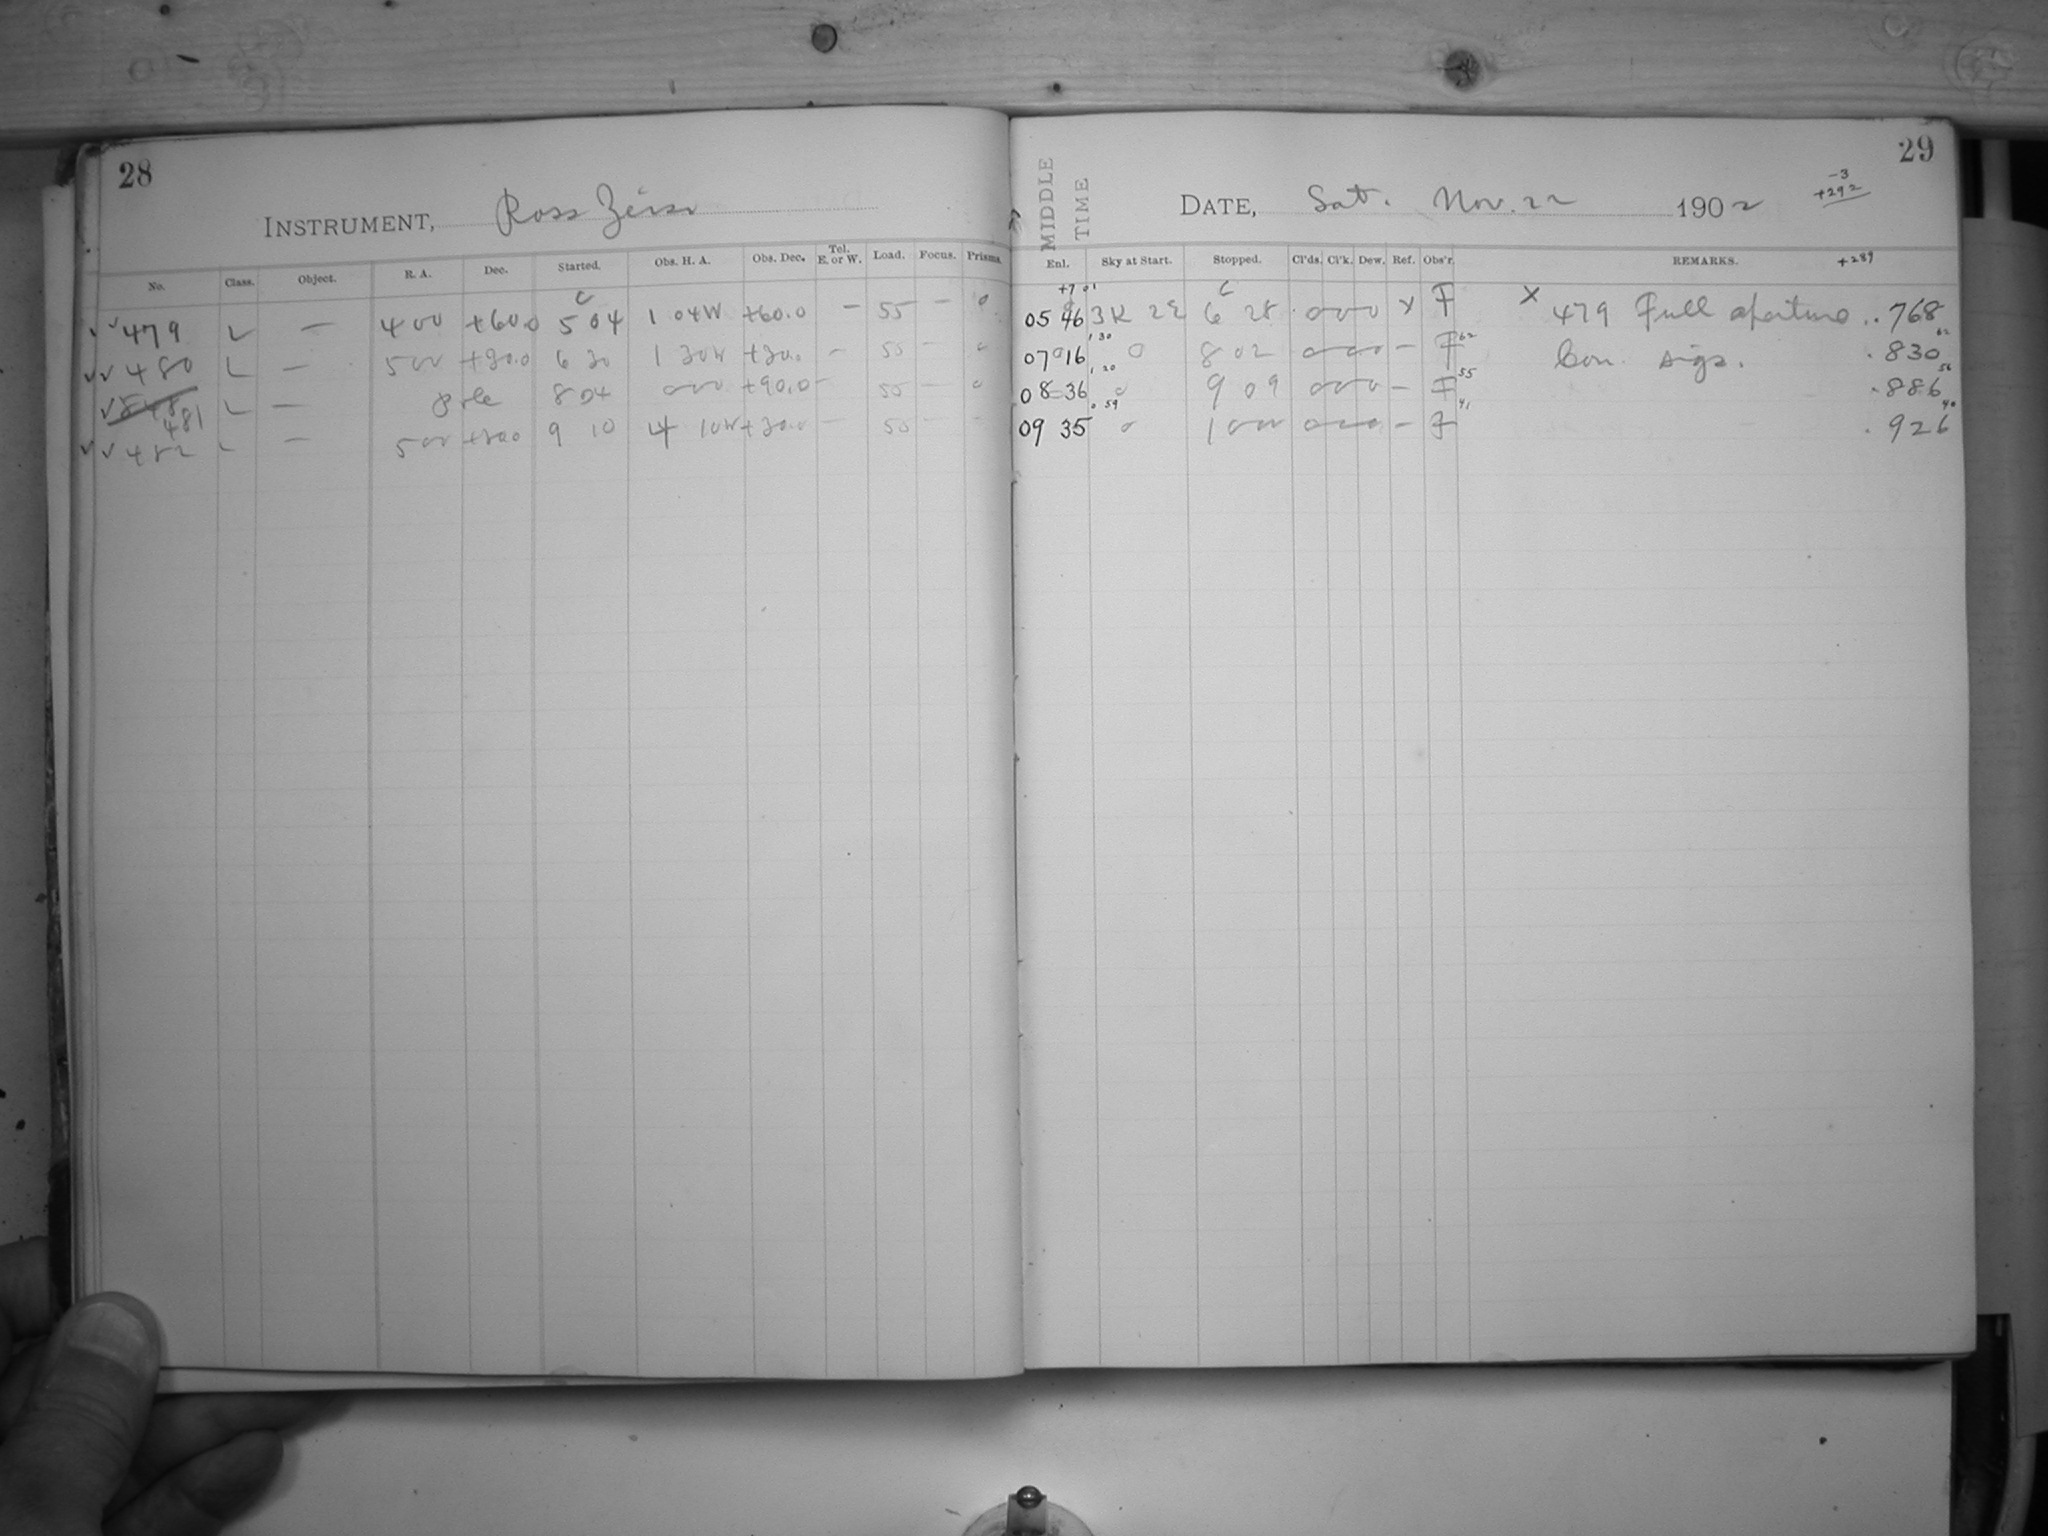 28
INSTRUMENT, Ross Zeiss
No. Class. Object. R. A. Dec. Started. Obs. H. A. Obs. Dec. Tel. E. or W. Load. Focus. Prisms.
c
✓✓ 479 L — 4 00 +60.0 5 04 1 04W +60.0 — 55 — 0
✓✓ 480 L — 5 00 +30.0 6 30 1 30W +30.0 — 55 — 0
✓ 481 L — Pole 8 04 0 00 +90.0 — 55 — 0
✓✓ 482 L — 5 00 +30.0 9 10 4 10W +30.0 — 55 — —
29
MIDDLE TIME
DATE, Sat. Nov. 22 1902
-3
+292
Enl. Sky at Start. Stopped. Cl'ds. Cl'k. Dew. Ref. Obs'r. REMARKS. +289
+7 01 c
05 46 3K 22 6 28 0 0 0 X F X 479 Full aperture .. .768
1 30 62 62
07 16 0 8 02 0 0 0 — F Con. sigs. .830
1 20 55 56
08 36 0 9 09 0 0 0 — F .886
0 59 41 40
09 35 0 10 00 0 0 0 — F .926